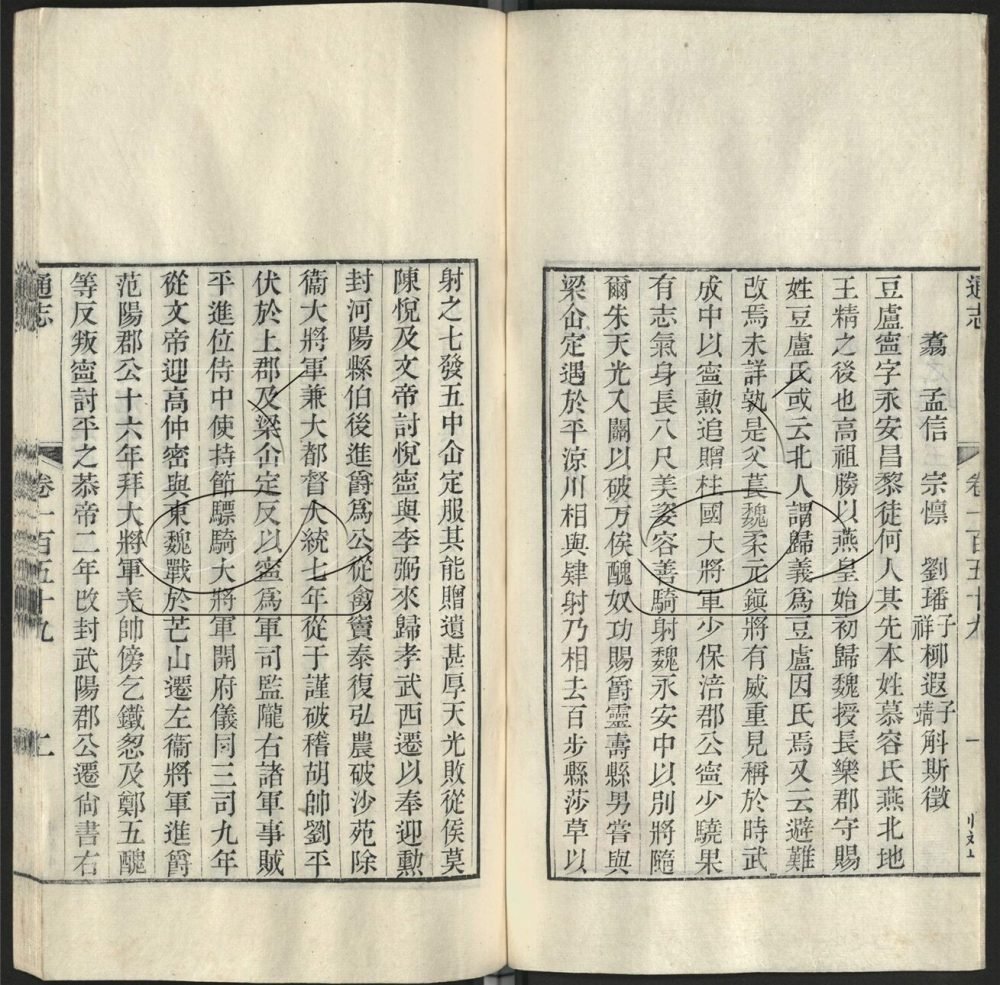 通志 卷一百五十九 一
翥 孟信 宗懍 劉璠子祥 柳遐子靖 斛斯徵
豆盧寧字永安昌黎徒何人其先本姓慕容氏燕北地
王精之後也高祖勝以燕皇始初歸魏授長樂郡守賜
姓豆盧氏或云北人謂歸義爲豆盧因氏焉又云避難
改焉未詳孰是父萇魏柔元鎭將有威重見稱於時武
成中以寧勳追贈柱國大將軍少保涪郡公寧少驍果
有志氣身長八尺美姿容善騎射魏永安中以別將隨
爾朱天光入關以破万俟醜奴功賜爵靈壽縣男嘗與
梁仚定遇於平涼川相與肄射乃相去百步縣莎草以
射之七發五中仚定服其能贈遺甚厚天光敗從侯莫
陳悅及文帝討悅寧與李弼來歸孝武西遷以奉迎勲
封河陽縣伯後進爵爲公從禽竇泰復弘農破沙苑除
衞大將軍兼大都督大統七年從于謹破稽胡帥劉平
伏於上郡及梁仚定反以寧爲軍司監隴右諸軍事賊
平進位侍中使持節驃騎大將軍開府儀同三司九年
從文帝迎高仲密與東魏戰於芒山遷左衞將軍進爵
范陽郡公十六年拜大將軍羌帥傍乞鐵怱及鄭五醜
等反叛寧討平之恭帝二年改封武陽郡公遷尙書右
通志 卷一百五十九 二